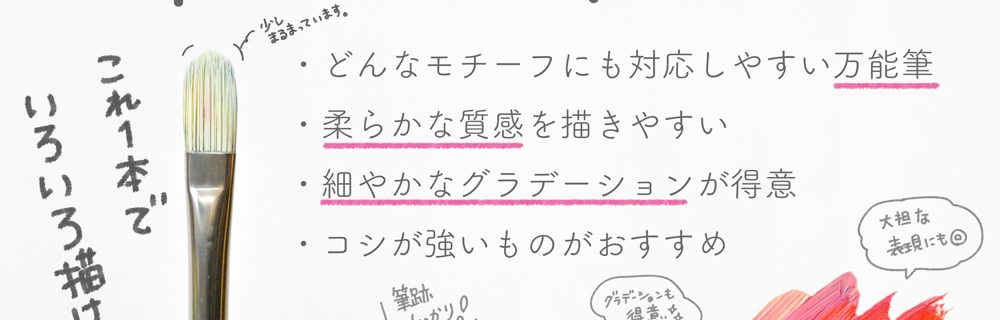 少し
まるまっています。
・どんなモチーフにも対応しやすい万能筆
・柔らかな質感を描きやすい
・細やかなグラデーションが得意
・コシが強いものがおすすめ
これ1本で
いろいろ描け
大担な
表現にも◎
筆跡
グラデーションも
得意